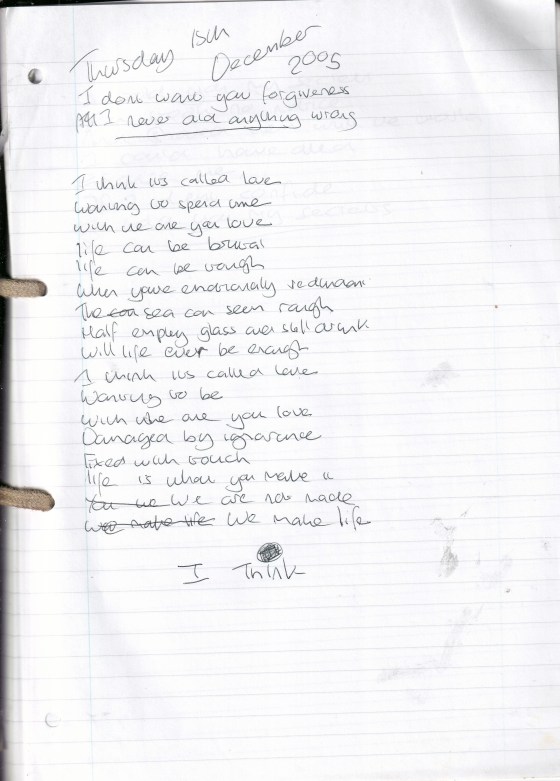 Thursday 15th
December
2005
I dont want you forgiveness
I never did anything wrong
I think its called love
Wanting to spend time
with the one you love
life can be brutal
life can be rough
When youve emotionally redundant
The sea can seem rough
Half empty glass over still drink
Will life ever be enough
I think its called love
Wanting to be
With the one you love
Damaged by ignorance
Fixed with touch
life is what you make it
You we We are not made
We make life We make life
I Think